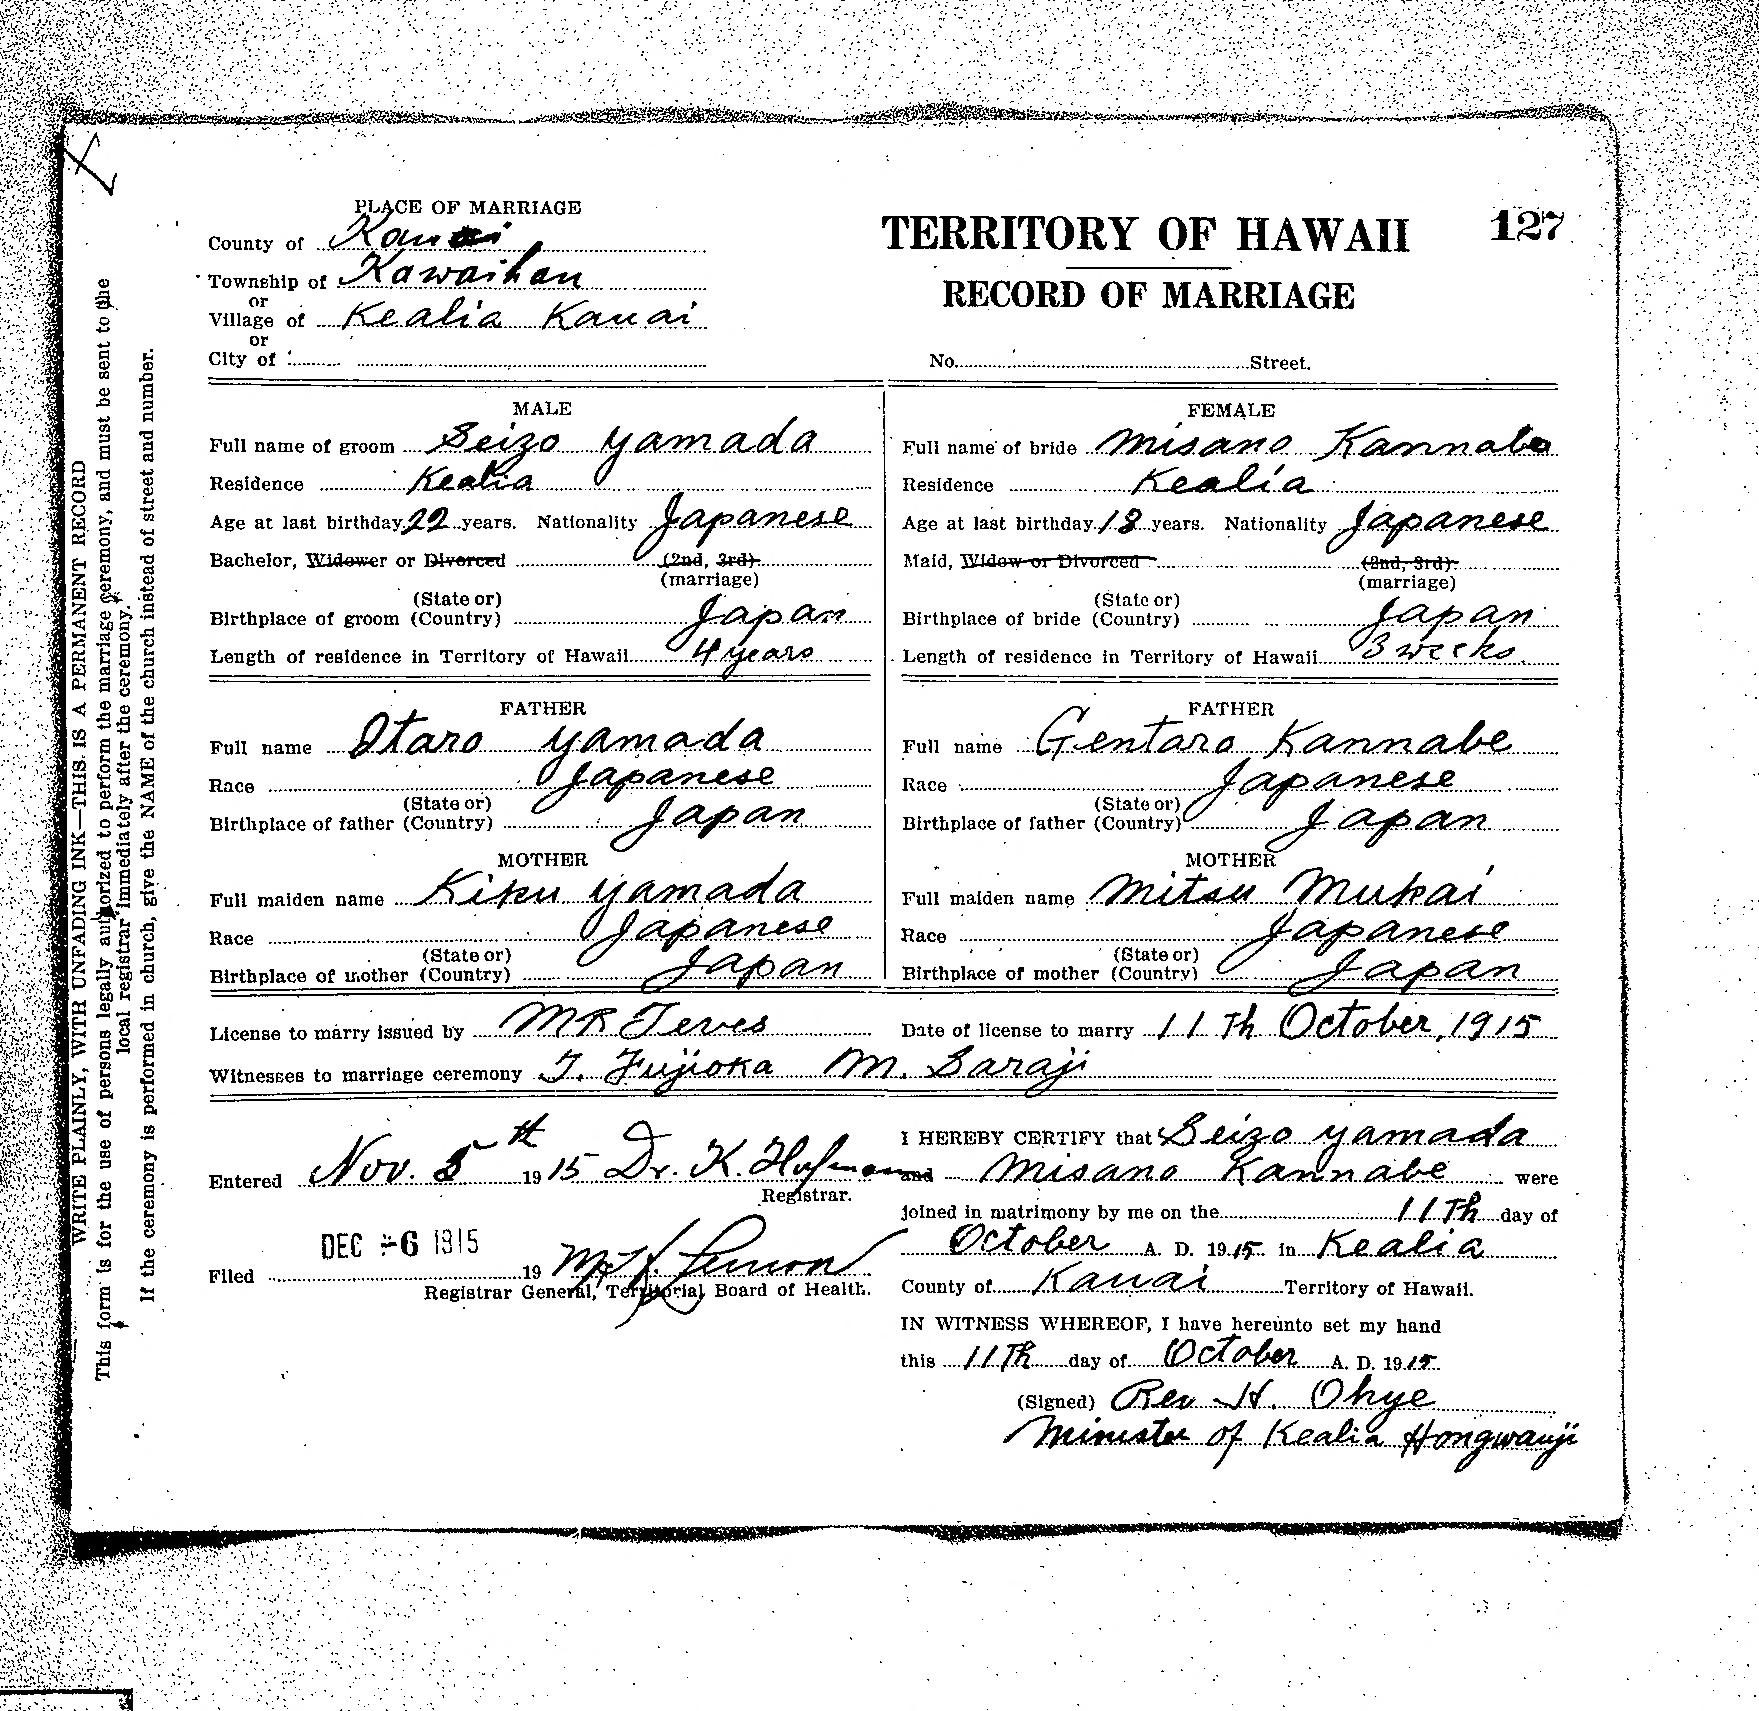 PLACE OF MARRIAGE
County of Kauai
Township of Kawaihau
or
Village of Kealia Kauai
or
City of
TERRITORY OF HAWAII 127
RECORD OF MARRIAGE
No. Street.
MALE
Full name of groom Seizo Yamada
Residence Kealia
Age at last birthday 22 years. Nationality Japanese
Bachelor, Widower or Divorced (2nd, 3rd)
(marriage)
(State or)
Birthplace of groom (Country) Japan
Length of residence in Territory of Hawaii 4 years
FEMALE
Full name of bride Misano Kannabe
Residence Kealia
Age at last birthday 18 years. Nationality Japanese
Maid, Widow or Divorced (2nd, 3rd)
(marriage)
(State or)
Birthplace of bride (Country) Japan
Length of residence in Territory of Hawaii 3 weeks
FATHER
Full name Otaro Yamada
Race Japanese
(State or)
Birthplace of father (Country) Japan
MOTHER
Full maiden name Kiku Yamada
Race Japanese
(State or)
Birthplace of mother (Country) Japan
FATHER
Full name Gentaro Kannabe
Race Japanese
(State or)
Birthplace of father (Country) Japan
MOTHER
Full maiden name Mitsu Mukai
Race Japanese
(State or)
Birthplace of mother (Country) Japan
License to marry issued by MR Teves Date of license to marry 11Th October, 1915
Witnesses to marriage ceremony T. Fujioka M. Saraji
Entered Nov. 5th 1915 Dr. K. Hofmann
Registrar.
DEC -6 1915
Filed 19
Registrar General, Territorial Board of Health.
I HEREBY CERTIFY that Seizo Yamada
and Misano Kannabe were
joined in matrimony by me on the 11Th day of
October A. D. 1915 in Kealia
County of Kauai Territory of Hawaii.
IN WITNESS WHEREOF, I have hereunto set my hand
this 11Th day of October A. D. 1915
(Signed) Rev H. Ohye
Minister of Kealia Hongwanji
WRITE PLAINLY, WITH UNFADING INK—THIS IS A PERMANENT RECORD
This form is for the use of persons legally authorized to perform the marriage ceremony, and must be sent to the
local registrar immediately after the ceremony.
If the ceremony is performed in church, give the NAME of the church instead of street and number.